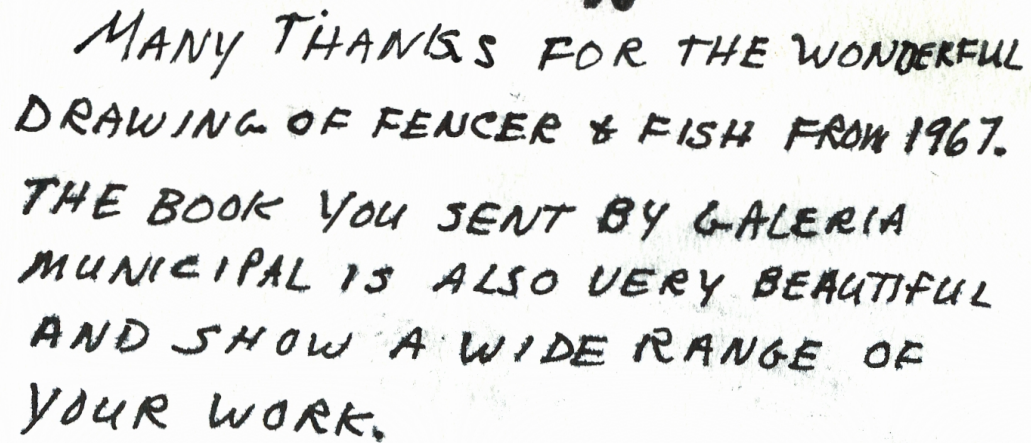 MANY THANKS FOR THE WONDERFUL
DRAWING OF FENCER & FISH FROM 1967.
THE BOOK YOU SENT BY GALERIA
MUNICIPAL IS ALSO VERY BEAUTIFUL
AND SHOW A WIDE RANGE OF
YOUR WORK.